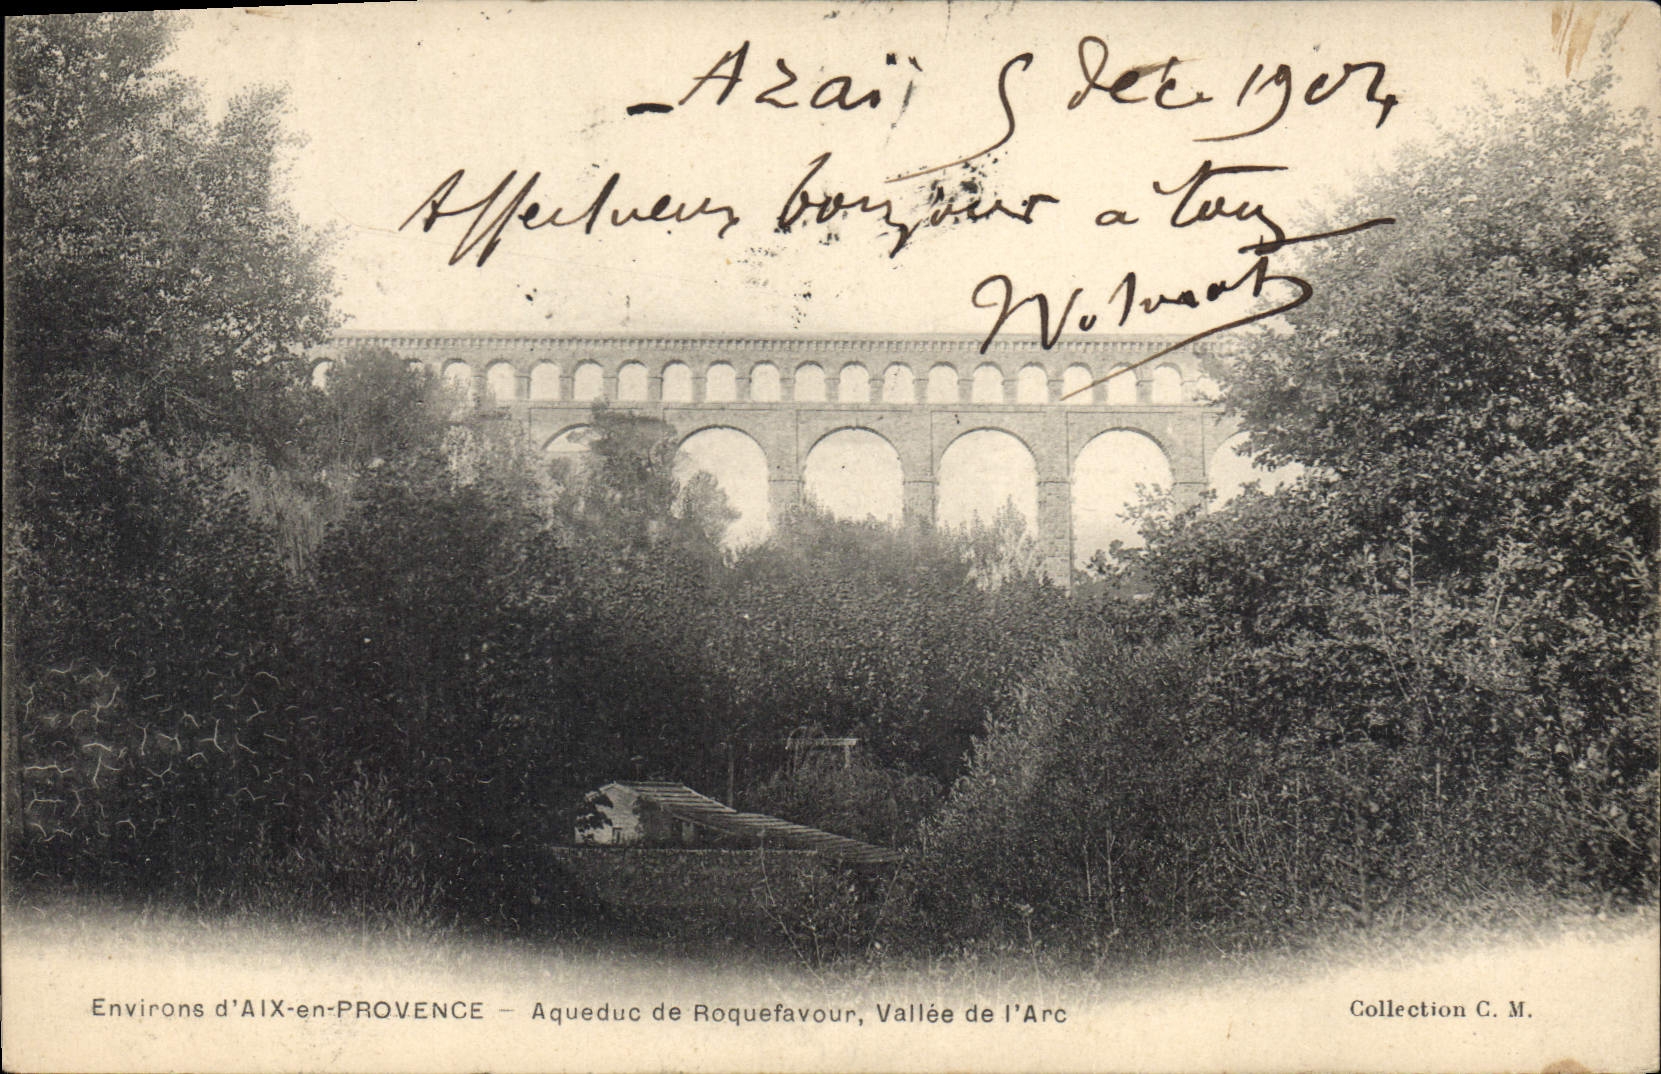 Azaï 5 déc. 1904
Affectueux bonjour à tous
Environs d'AIX-en-PROVENCE — Aqueduc de Roquefavour, Vallée de l'Arc
Collection C. M.